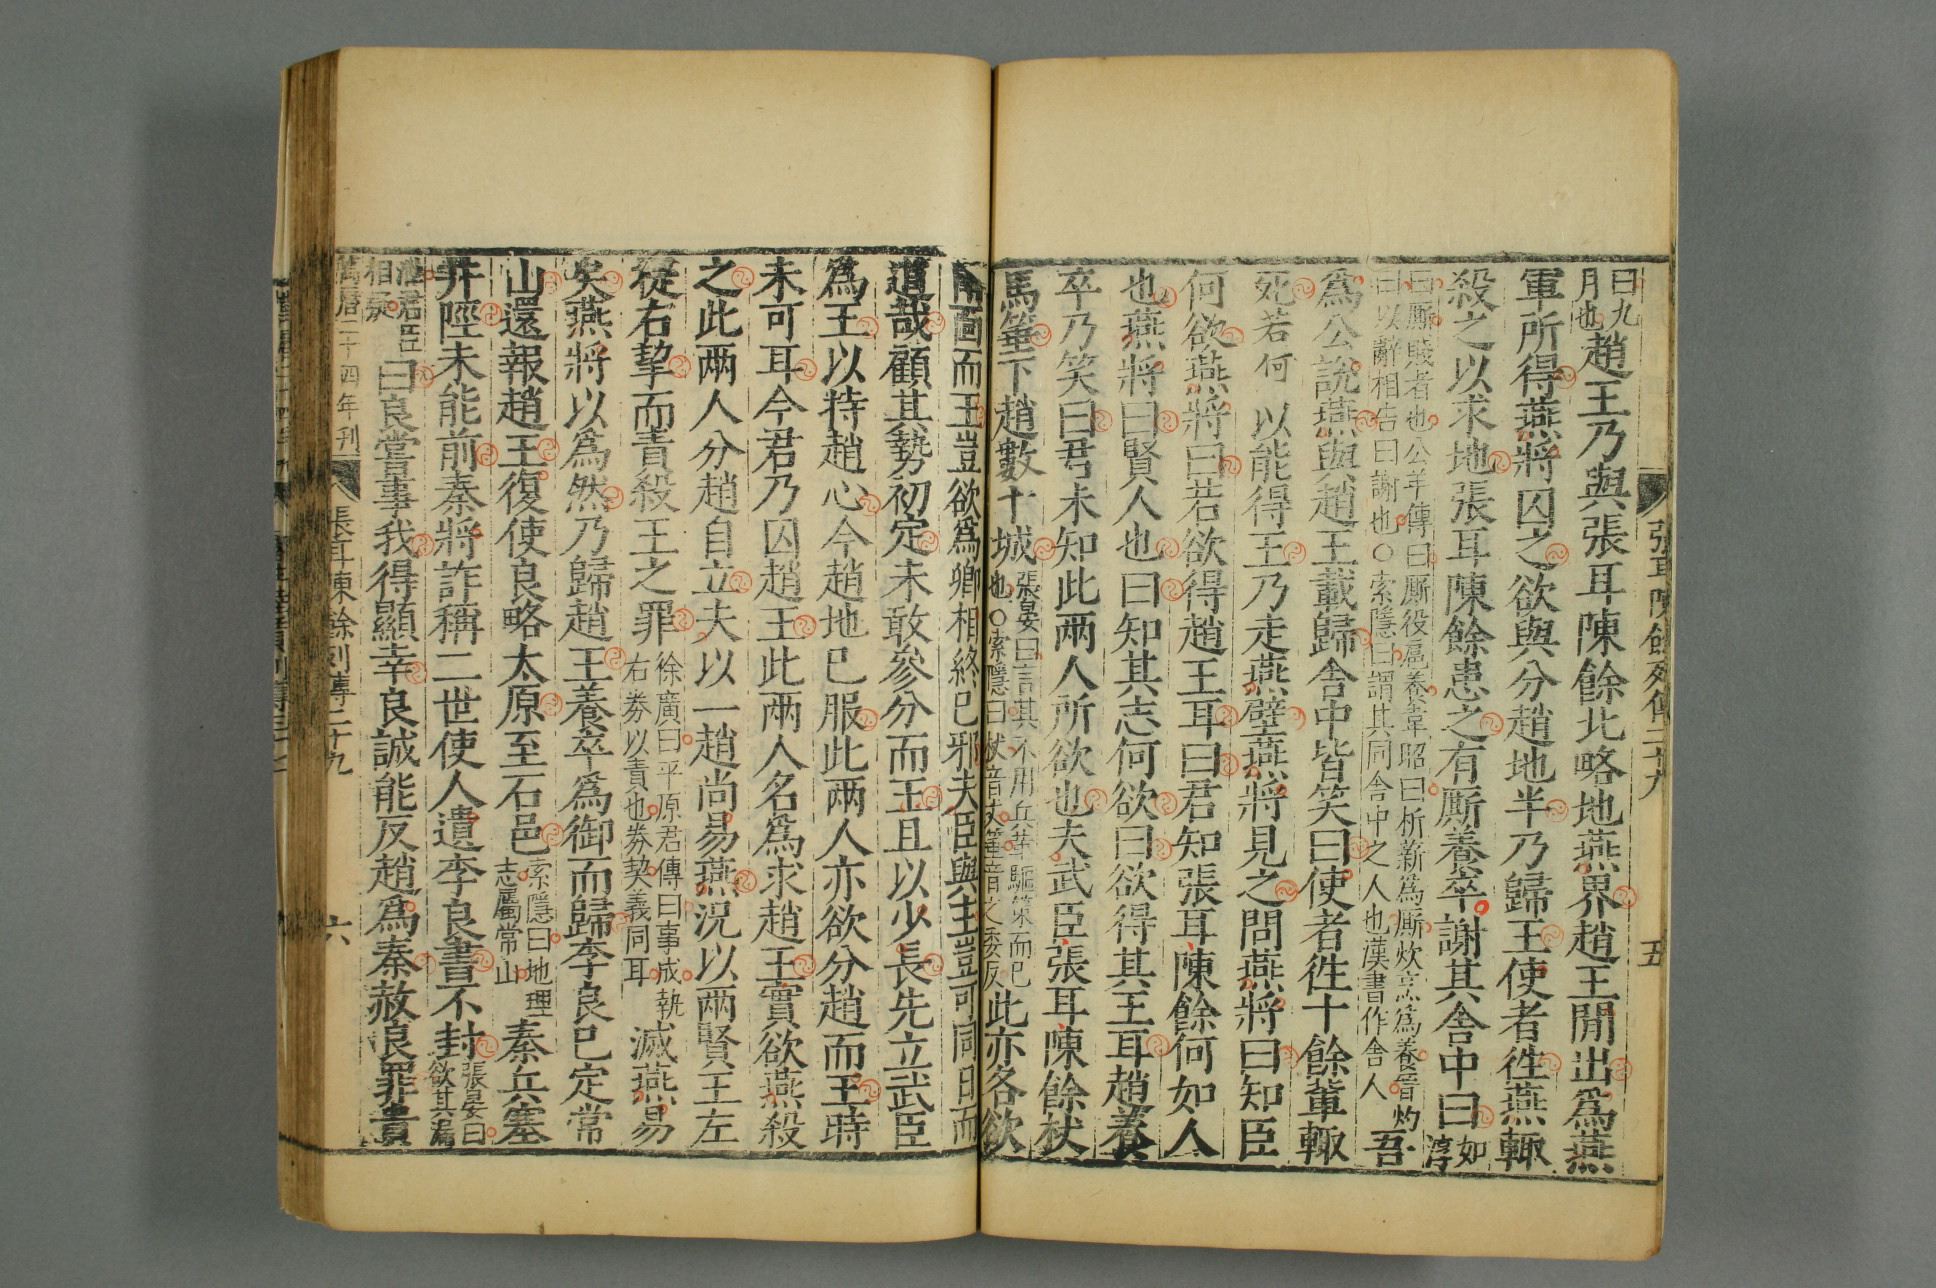 曰九月也趙王乃與張耳陳餘北略地燕界趙王閒出爲燕
軍所得燕將囚之欲與分趙地半乃歸王使者徃燕輙
殺之以求地張耳陳餘患之有廝養卒謝其舍中曰如淳
曰廝賤者也公羊傳曰廝役扈養韋昭曰析薪爲廝炊烹爲養晋灼
曰以辭相告曰謝也○索隱曰謂其同舍中之人也漢書作舍人
吾
爲公說燕與趙王載歸舍中皆笑曰使者徃十餘輩輙
死若何以能得王乃走燕壁燕將見之問燕將曰知臣
何欲燕將曰若欲得趙王耳曰君知張耳陳餘何如人
也燕將曰賢人也曰知其志何欲曰欲得其王耳趙養
卒乃笑曰君未知此兩人所欲也夫武臣張耳陳餘杖
馬箠下趙數十城
張晏曰言其不用兵革驅策而已
也○索隱曰杖音丈箠音之委反
此亦各欲
南面而王豈欲爲卿相終已邪夫臣與主豈可同日而
道哉顧其勢初定未敢參分而王且以少長先立武臣
爲王以持趙心今趙地已服此兩人亦欲分趙而王時
未可耳今君乃囚趙王此兩人名爲求趙王實欲燕殺
之此兩人分趙自立夫以一趙尚易燕況以兩賢王左
提右挈而責殺王之罪
徐廣曰平原君傳曰事成執
右券以責也券契義同耳
滅燕易
矣燕將以爲然乃歸趙王養卒爲御而歸李良已定常
山還報趙王復使良略太原至石邑
索隱曰地理
志屬常山
秦兵塞
井陘未能前秦將詐稱二世使人遺李良書不封
張晏曰
欲其漏
泄君臣
相疑
曰良嘗事我得顯幸良誠能反趙爲秦赦良罪貴
萬曆二十四年刊
張耳陳餘列傳二十九
六
張耳陳餘列傳二十九
五